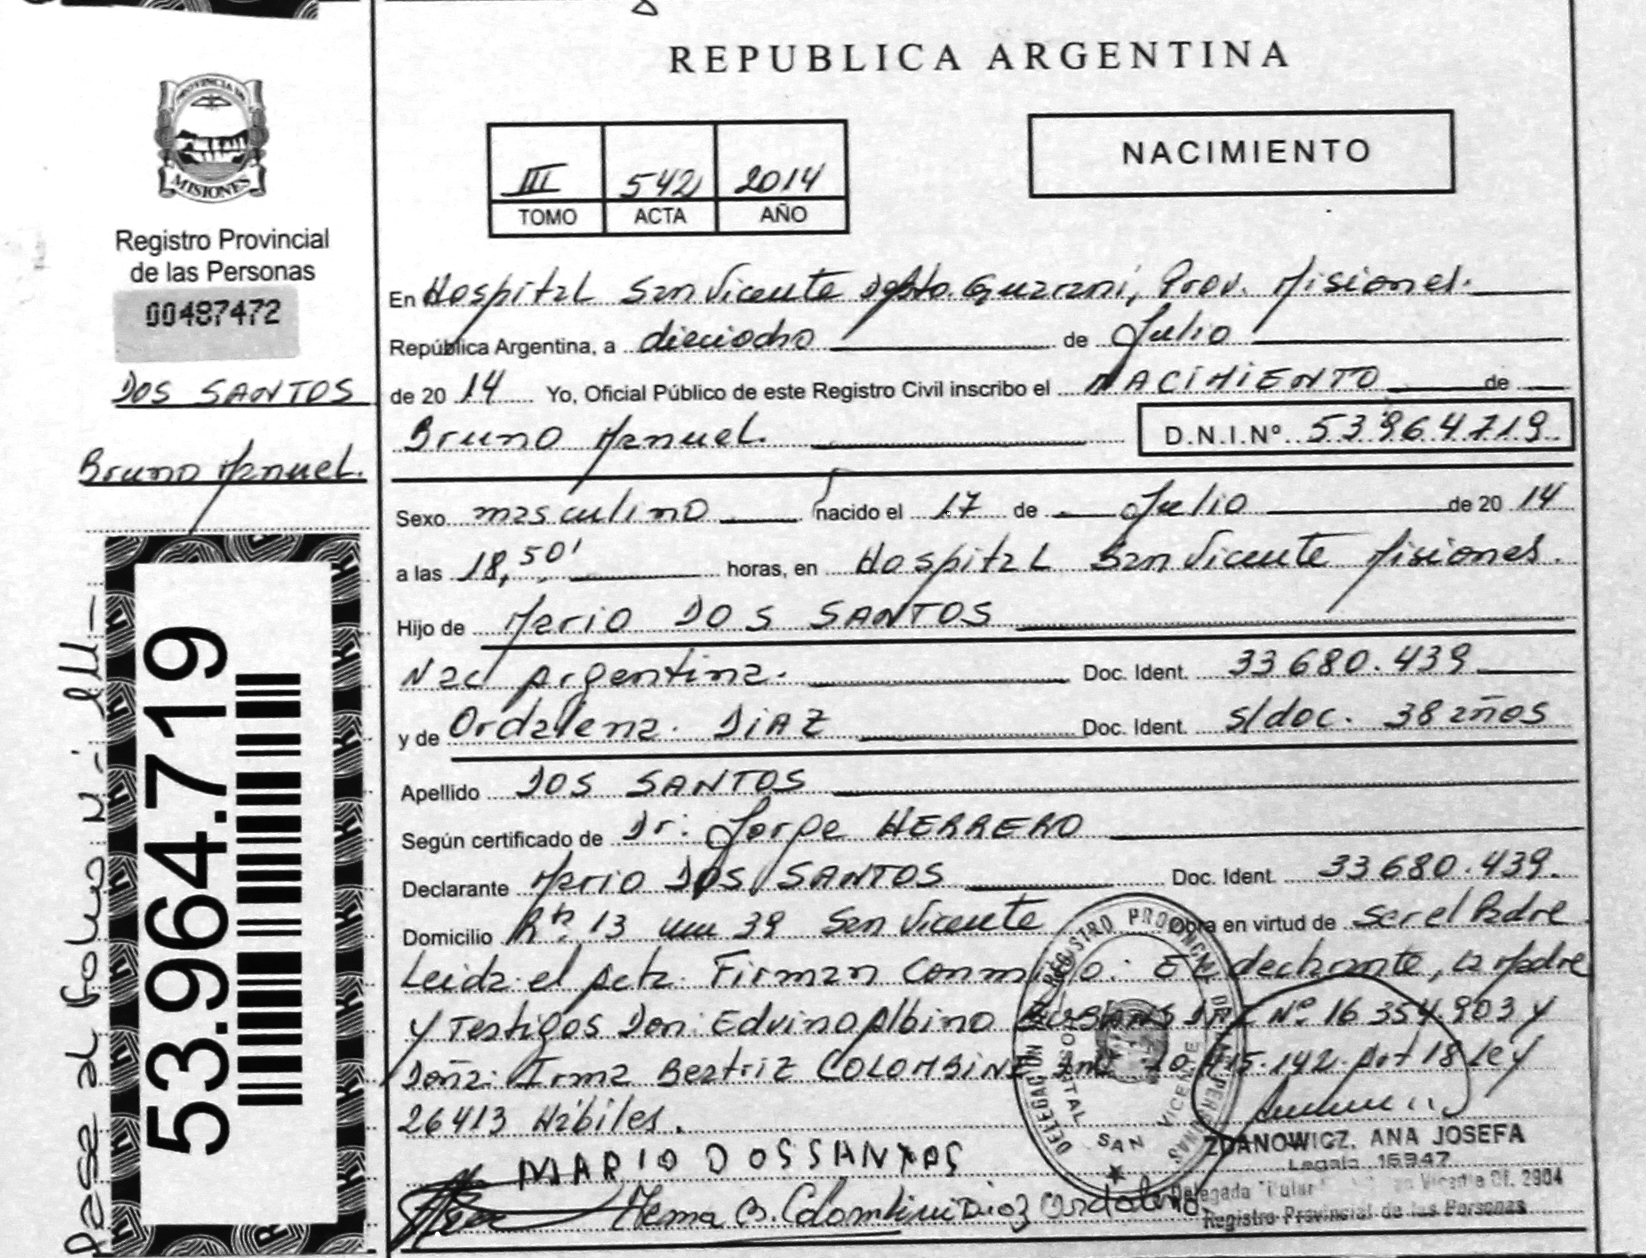 REPUBLICA ARGENTINA
PROVINCIA DE
MISIONES
Registro Provincial
de las Personas
00487472
DOS SANTOS
Bruno Manuel.
53.964.719
III 542 2014
TOMO ACTA AÑO
NACIMIENTO
En Hospital San Vicente Depto. Guaraní, Prov. Misiones.
República Argentina, a dieciocho de Julio
de 20 14 Yo, Oficial Público de este Registro Civil inscribo el NACIMIENTO de
Bruno Manuel. D.N.I.Nº 53964719
Sexo masculino nacido el 17 de Julio de 20 14
a las 18,50' horas, en Hospital San Vicente Misiones.
Hijo de Mario DOS SANTOS
Nac Argentina. Doc. Ident. 33680.439
y de Ordalena. DIAZ Doc. Ident. s/doc. 38 años
Apellido DOS SANTOS
Según certificado de Dr: Jorge HERRERO
Declarante Mario DOS SANTOS Doc. Ident. 33680.439.
Domicilio 13 39 San Vicente Obra en virtud de ser el Padre
Leida el acta. Firman Conmigo: El declarante, la Madre
y Testigos Don: Edvino Albino Nº 16354903 y
Doña: Irma Beatriz COLOMBINI Art 18 Ley
26413 Hábiles.
MARIO DOSSANTOS
Irma B. Colombini Diaz Ordalena
DELEGACION REGISTRO PROVINCIAL DE LAS PERSONAS
HOSPITAL
SAN VICENTE
ZDANOWICZ, ANA JOSEFA
Legajo 16947
Delegada Titular San Vicente Of. 2904
Registro Provincial de las Personas